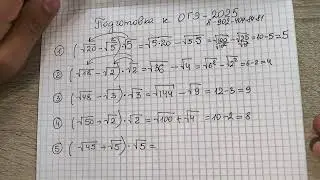 Подготовка к ОГЭ - 2025
① (√20 - √5)·√5 = √5·20 - √5·5 = √100 - √25 = 10 - 5 = 5
② (√18 - √2)·√2 = √36 - √4 = √6² - √2² = 6 - 2 = 4
③ (√48 - √3)·√3 = √144 - √9 = 12 - 3 = 9
④ (√50 + √2)·√2 = √100 + √4 = 10 - 2 = 8
⑤ (√45 + √5)·√5 =